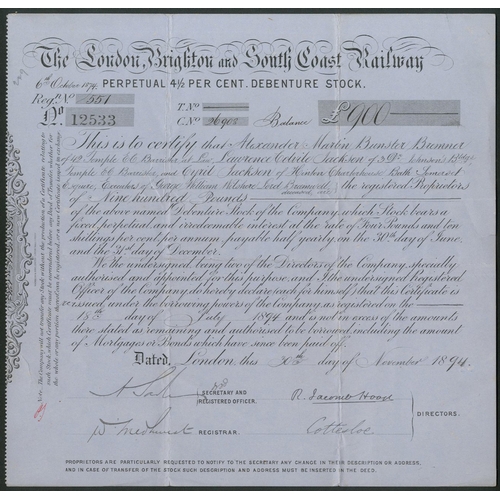 The London, Brighton and South Coast Railway
6th October 1874.
PERPETUAL 4½ PER CENT. DEBENTURE STOCK.
Regd. No 551
T. No
No 12533
C. No 26902
Balance £900
This is to certify that Alexander Martin Bunster Bremner
of 42 Temple EC Barrister at Law, Lawrence Colvile Jackson of 3 Dr Johnson's Bldgs
Temple EC Barrister, and Cyril Jackson of Hinton Charterhouse Bath Somerset
Esquire, Executors of George William Wilshere Lord Bramwell deceased the registered Proprietors
of Nine hundred Pounds
of the above named Debenture Stock of the Company, which Stock bears a
fixed perpetual and irredeemable interest at the rate of Four Pounds and ten
shillings per cent per annum, payable half yearly, on the 30th day of June,
and the 31st day of December.
We the undersigned being two of the Directors of the Company, specially
authorised and appointed for this purpose, and I the undersigned Registered
Officer of the Company do hereby declare (each for himself) that this Certificate is
issued under the borrowing powers of the Company as registered on the
day of July 1894 and is not in excess of the amounts
there stated as remaining and authorised to be borrowed including the amount
of Mortgages or Bonds which have since been paid off.
Dated, London, this 30th day of November 1894.
SECRETARY AND
REGISTERED OFFICER.
R. Jacomb Hood
DIRECTORS.
REGISTRAR.
Cottesloe
PROPRIETORS ARE PARTICULARLY REQUESTED TO NOTIFY TO THE SECRETARY ANY CHANGE IN THEIR DESCRIPTION OR ADDRESS,
AND IN CASE OF TRANSFER OF THE STOCK SUCH DESCRIPTION AND ADDRESS MUST BE INSERTED IN THE DEED.
Note. The Company will not transfer any Stock without the production of a Certificate relating to